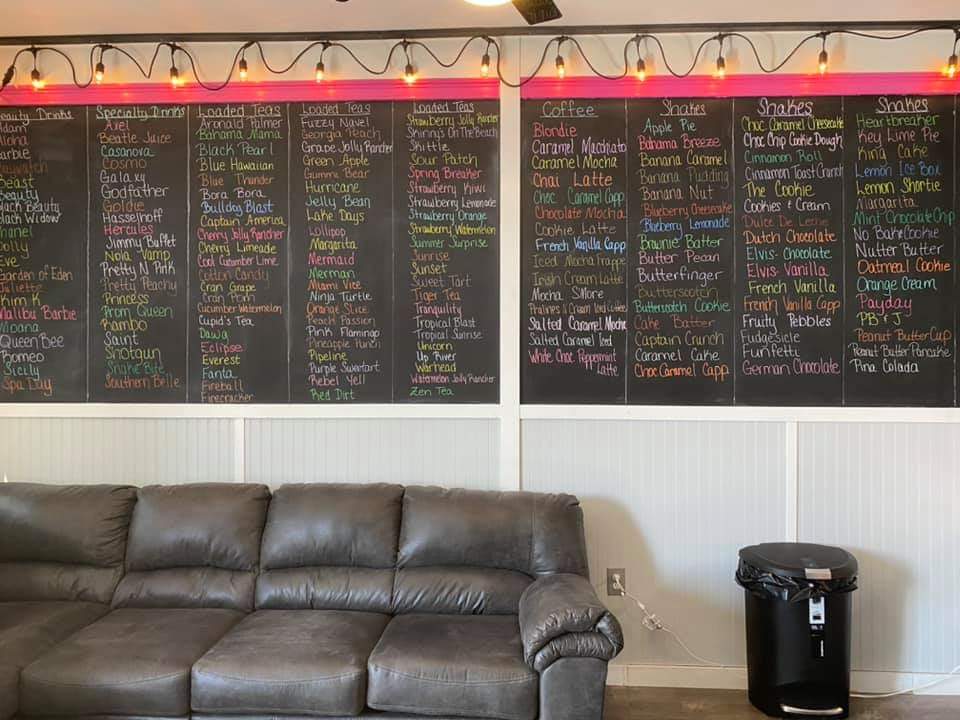 Beauty Drinks
Adam
Aloha
Barbie
Beast
Beauty
Black Beauty
Black Widow
Chanel
Dolly
Eve
Garden of Eden
Juliette
Kim K
Malibu Barbie
Moana
Queen Bee
Romeo
Sicily
Spa Day
Specialty Drinks
Axel
Beatle Juice
Casanova
Cosmo
Galaxy
Godfather
Goldie
Hasselhoff
Hercules
Jimmy Buffet
Nola Vamp
Pretty N Pink
Pretty Peachy
Princess
Prom Queen
Rambo
Saint
Shotgun
Snake Bite
Southern Belle
Loaded Teas
Arnold Palmer
Bahama Mama
Black Pearl
Blue Hawaiian
Blue Thunder
Bora Bora
Bulldog Blast
Captain America
Cherry Jolly Rancher
Cherry Limeade
Cook Cucumber Lime
Cotton Candy
Cran Grape
Cran Pom
Cucumber Watermelon
Cupid's Tea
Dawg
Eclipse
Everest
Fanta
Fireball
Firecracker
Loaded Teas
Fuzzy Navel
Georgia Peach
Grape Jolly Rancher
Green Apple
Gummie Bear
Hurricane
Jelly Bean
Lake Days
Lollipop
Margarita
Mermaid
Merman
Miami Vice
Ninja Turtle
Orange Slice
Peach Passion
Pink Flamingo
Pineapple Punch
Pipeline
Purple Swartart
Rebel Yell
Red Dirt
Loaded Teas
Strawberry Jolly Rancher
Skinny's On The Beach
Skittle
Sour Patch
Spring Breaker
Strawberry Kiwi
Strawberry Lemonade
Strawberry Orange
Strawberry Watermelon
Summer Surprise
Sunrise
Sunset
Sweet Tart
Tiger Tea
Tranquility
Tropical Blast
Tropical Sunrise
Unicorn
Up River
Warhead
Watermelon Jolly Rancher
Zen Tea
Coffee
Blondie
Caramel Macchiato
Caramel Mocha
Chai Latte
Choc Caramel Capp
Chocolate Mocha
Cookie Latte
French Vanilla Capp
Iced Mocha Frappe
Irish Cream Latte
Mocha S'More
Pralines & Cream Iced Coffee
Salted Caramel Mocha
Salted Caramel Iced
White Choc Peppermint
Latte
Shakes
Apple Pie
Bahama Breeze
Banana Caramel
Banana Pudding
Banana Nut
Blueberry Cheesecake
Blueberry Lemonade
Brownie Batter
Butter Pecan
Butterfinger
Butterscotch
Butterscotch Cookie
Cake Batter
Captain Crunch
Caramel Cake
Choc Caramel Capp
Shakes
Choc Caramel Cheesecake
Choc Chip Cookie Dough
Cinnamon Roll
Cinnamon Toast Crunch
The Cookie
Cookies & Cream
Dulce De Leche
Dutch Chocolate
Elvis-Chocolate
Elvis-Vanilla
French Vanilla
French Vanilla Capp
Fruity Pebbles
Fudgesicle
Funfetti
German Chocolate
Shakes
Heartbreaker
Key Lime Pie
King Cake
Lemon Ice Box
Lemon Shortie
Margarita
Mint Chocolate Chip
No Bake Cookie
Nutter Butter
Oatmeal Cookie
Orange Cream
Payday
PB & J
Peanut Butter Cup
Peanut Butter Pancake
Pina Colada